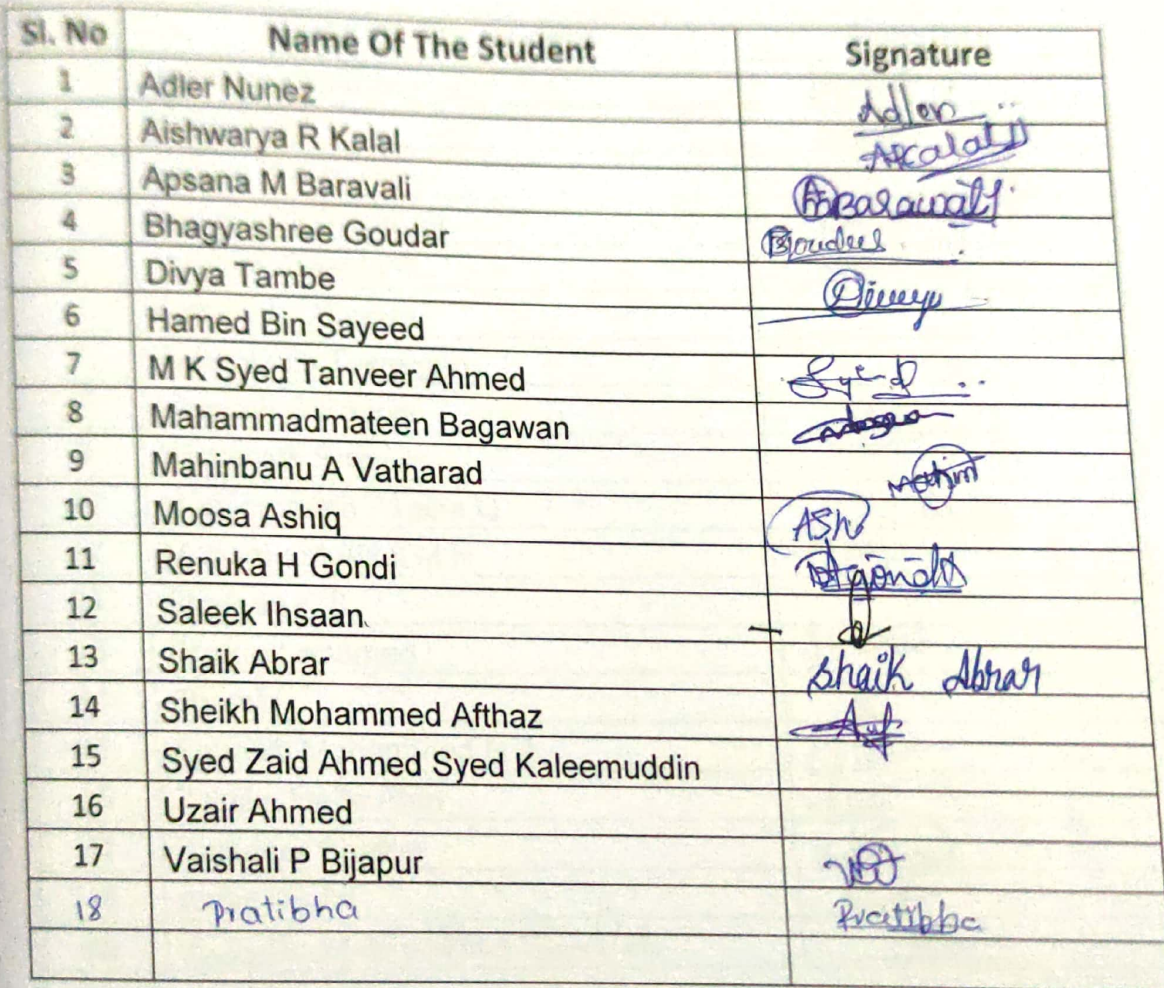 Sl. No Name Of The Student Signature
1 Adler Nunez Adler
2 Aishwarya R Kalal ARKalal
3 Apsana M Baravali Barawali
4 Bhagyashree Goudar
5 Divya Tambe
6 Hamed Bin Sayeed
7 M K Syed Tanveer Ahmed Syed
8 Mahammadmateen Bagawan
9 Mahinbanu A Vatharad
10 Moosa Ashiq ASh
11 Renuka H Gondi
12 Saleek Ihsaan
13 Shaik Abrar Shaik Abrar
14 Sheikh Mohammed Afthaz
15 Syed Zaid Ahmed Syed Kaleemuddin
16 Uzair Ahmed
17 Vaishali P Bijapur
18 Pratibha Pratibha